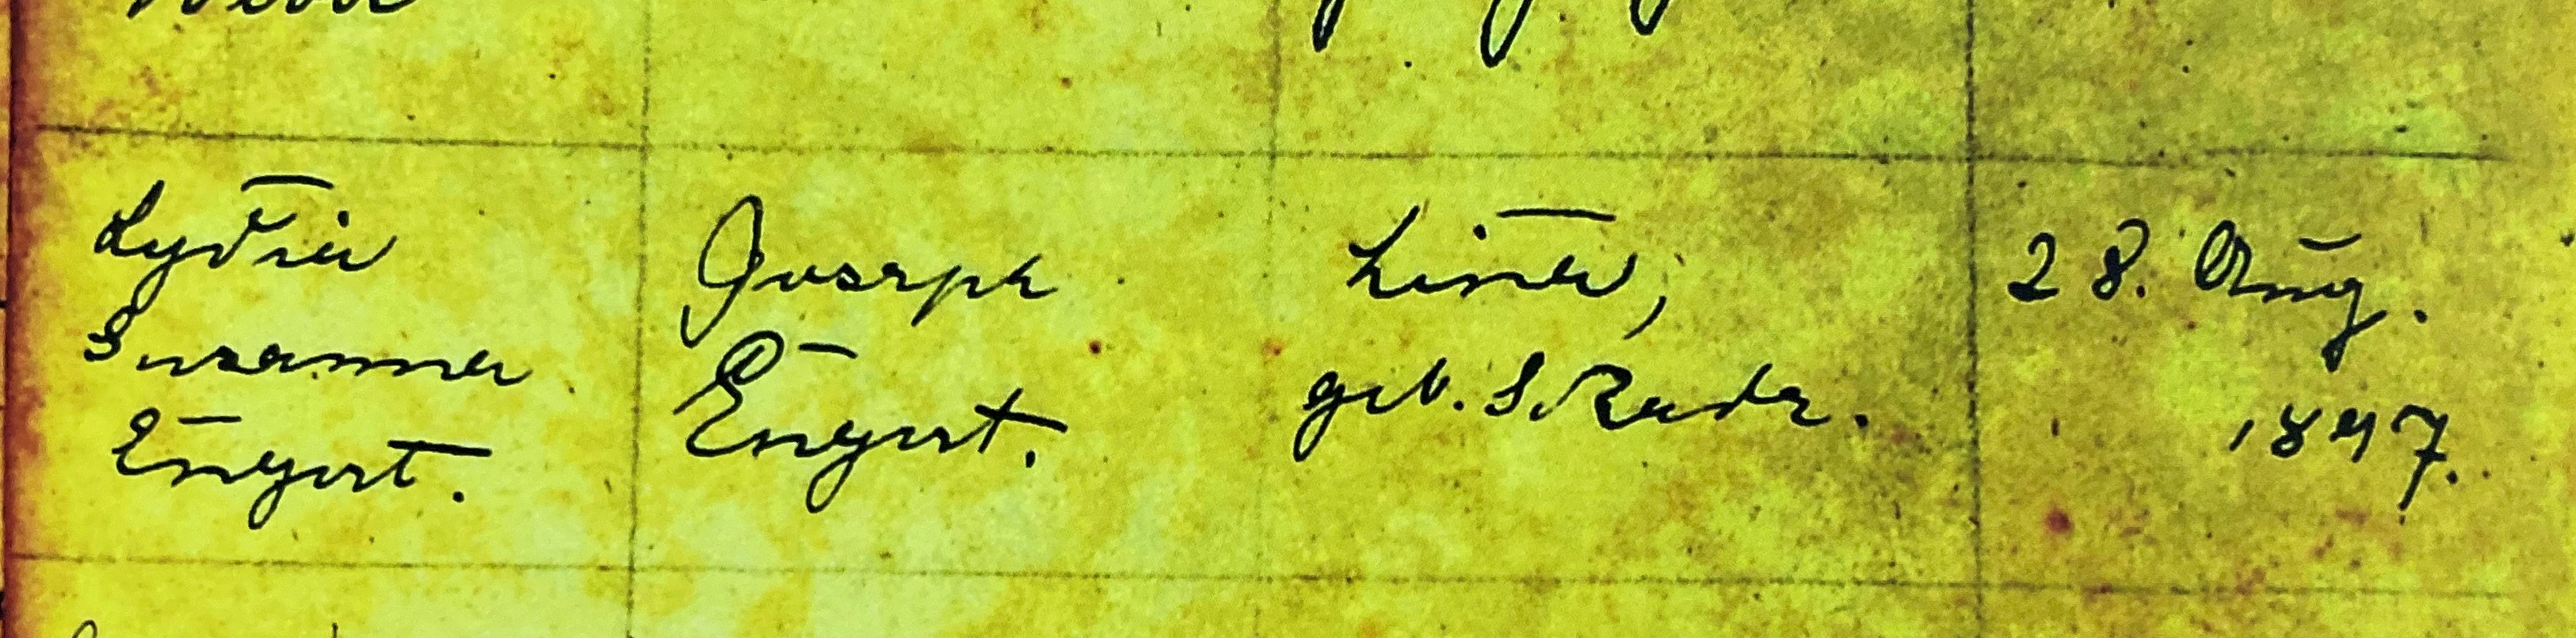 Lydia
Susanna
Engert.
Joseph
Engert.
Lina,
geb.
28. Aug.
1897.